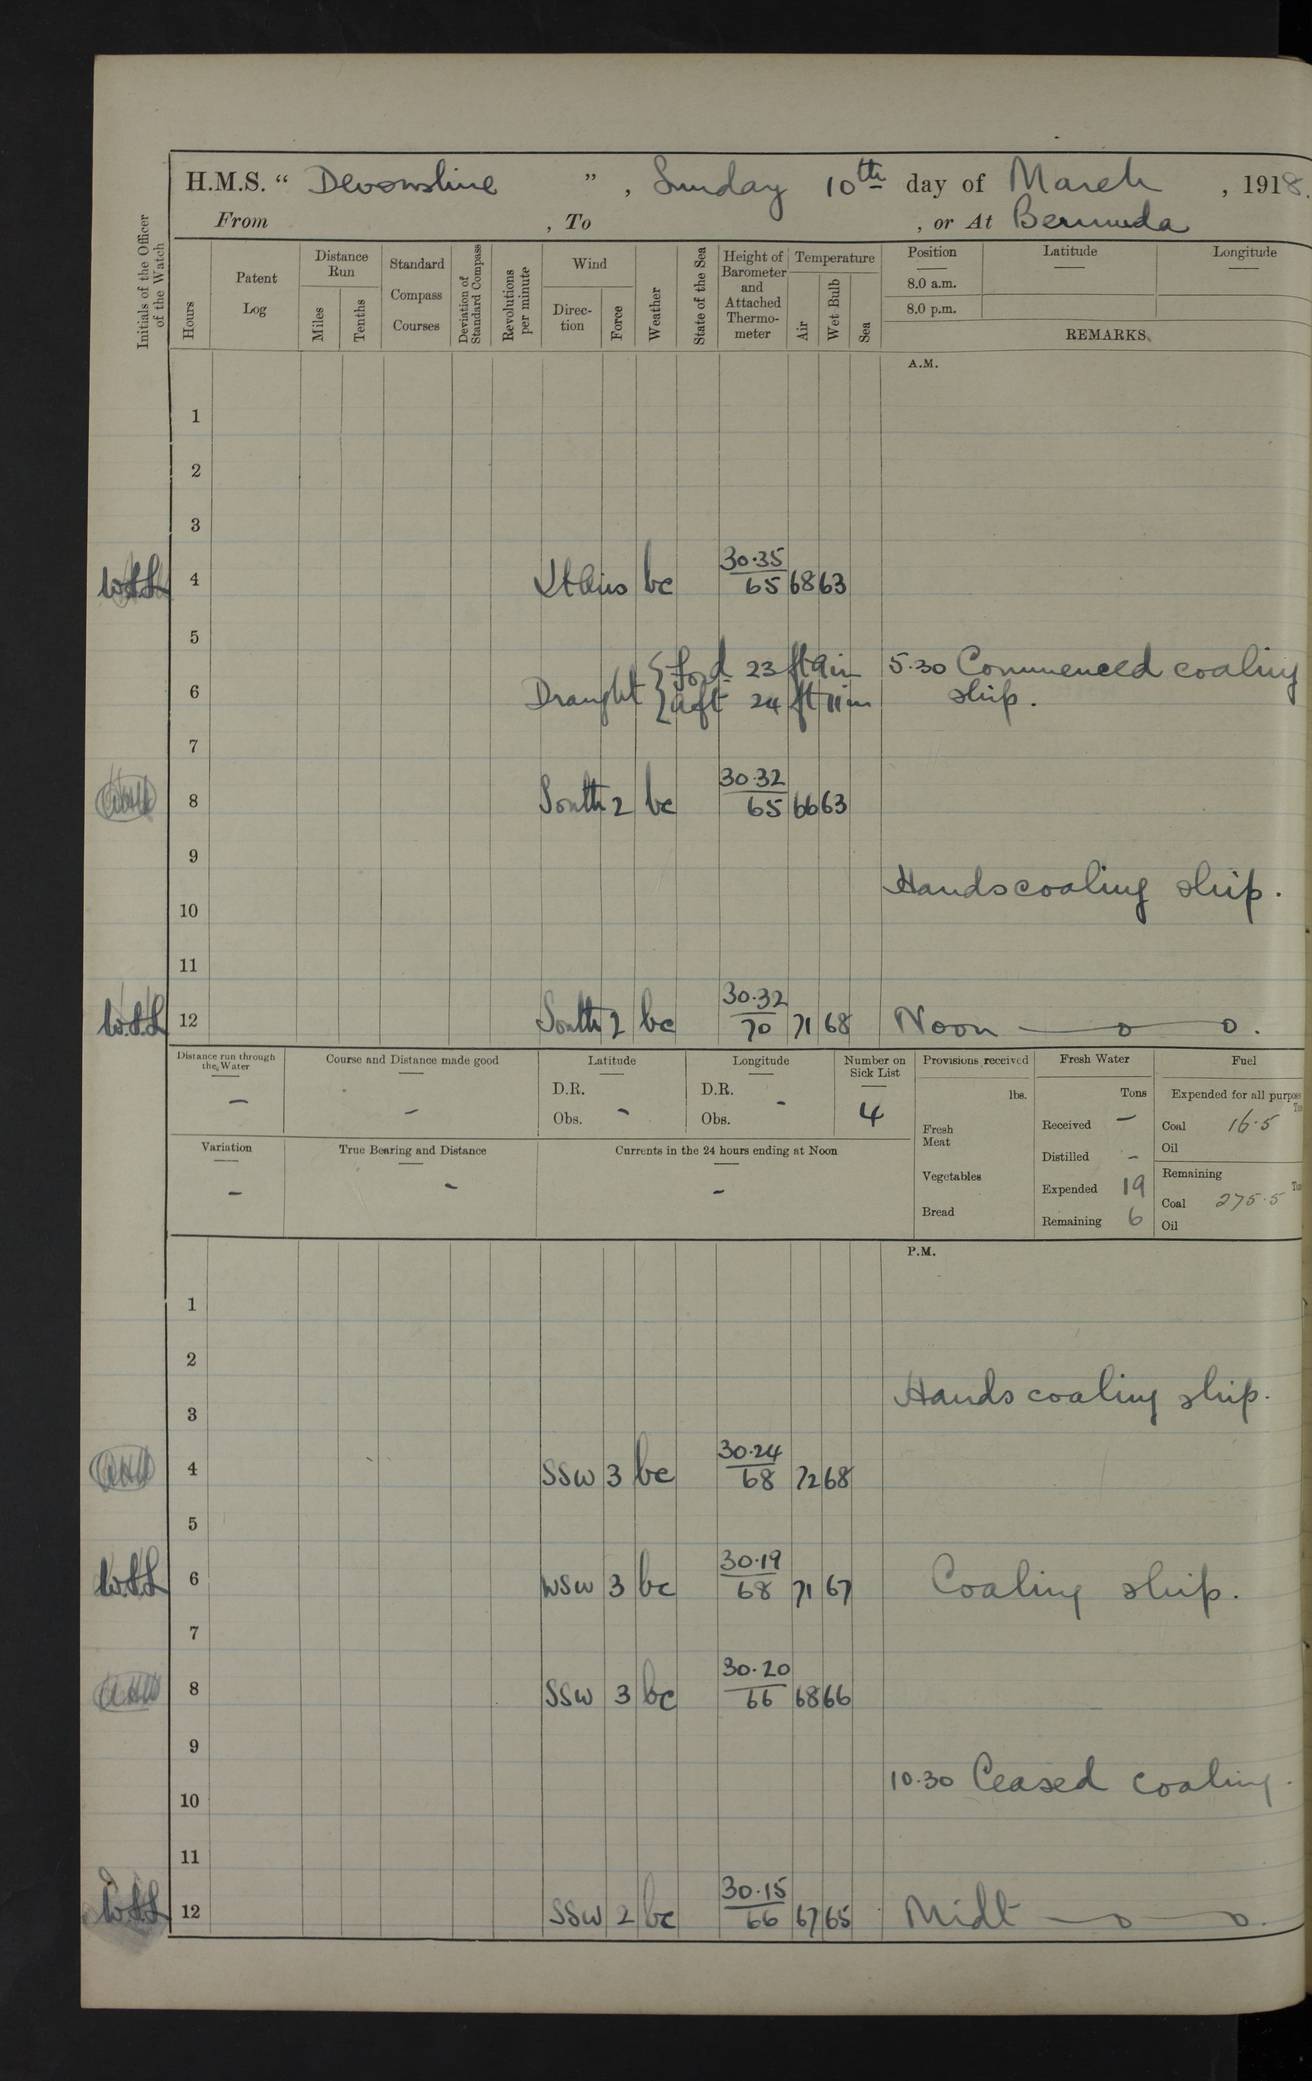 H.M.S. “ Devonshire ” , Sunday 10th day of March , 1918.
From , To , or At Bermuda
Initials of the Officer of the Watch
Hours
Patent Log
Distance Run
Miles
Tenths
Standard Compass Courses
Deviation of Standard Compass
Revolutions per minute
Wind
Direc-tion
Force
Weather
State of the Sea
Height of Barometer and Attached Thermo-meter
Temperature
Air
Wet Bulb
Sea
Position
8.0 a.m.
8.0 p.m.
Latitude
Longitude
REMARKS.
A.M.
1
2
3
30.35
4 Lt Airs bc 65 68 63
5
Draught { ford 23 ft 9 in 5.30 Commenced coaling
6 aft 24 ft 11 in ship.
7
30.32
8 South 2 bc 65 66 63
9
Hands coaling ship.
10
11
30.32
W.S.L 12 South 2 bc 70 71 68 Noon
Distance run through the Water
-
Course and Distance made good
-
Latitude
D.R.
Obs. -
Longitude
D.R. -
Obs.
Number on Sick List
4
Provisions received
lbs.
Fresh Meat
Vegetables
Bread
Fresh Water
Tons
Received -
Distilled -
Expended 19
Remaining 6
Fuel
Expended for all purpose
Coal 16.5
Oil
Remaining
Coal 275.5
Oil
Variation
-
True Bearing and Distance
-
Currents in the 24 hours ending at Noon
-
P.M.
1
2
Hands coaling ship.
3
30.24
4 SSW 3 bc 68 72 68
5
30.19
W.S.L 6 WSW 3 bc 68 71 67 Coaling ship.
7
30.20
8 SSW 3 bc 66 68 66
9
10.30 Ceased coaling.
10
11
30.15
12 SSW 2 bc 66 67 65 Midt